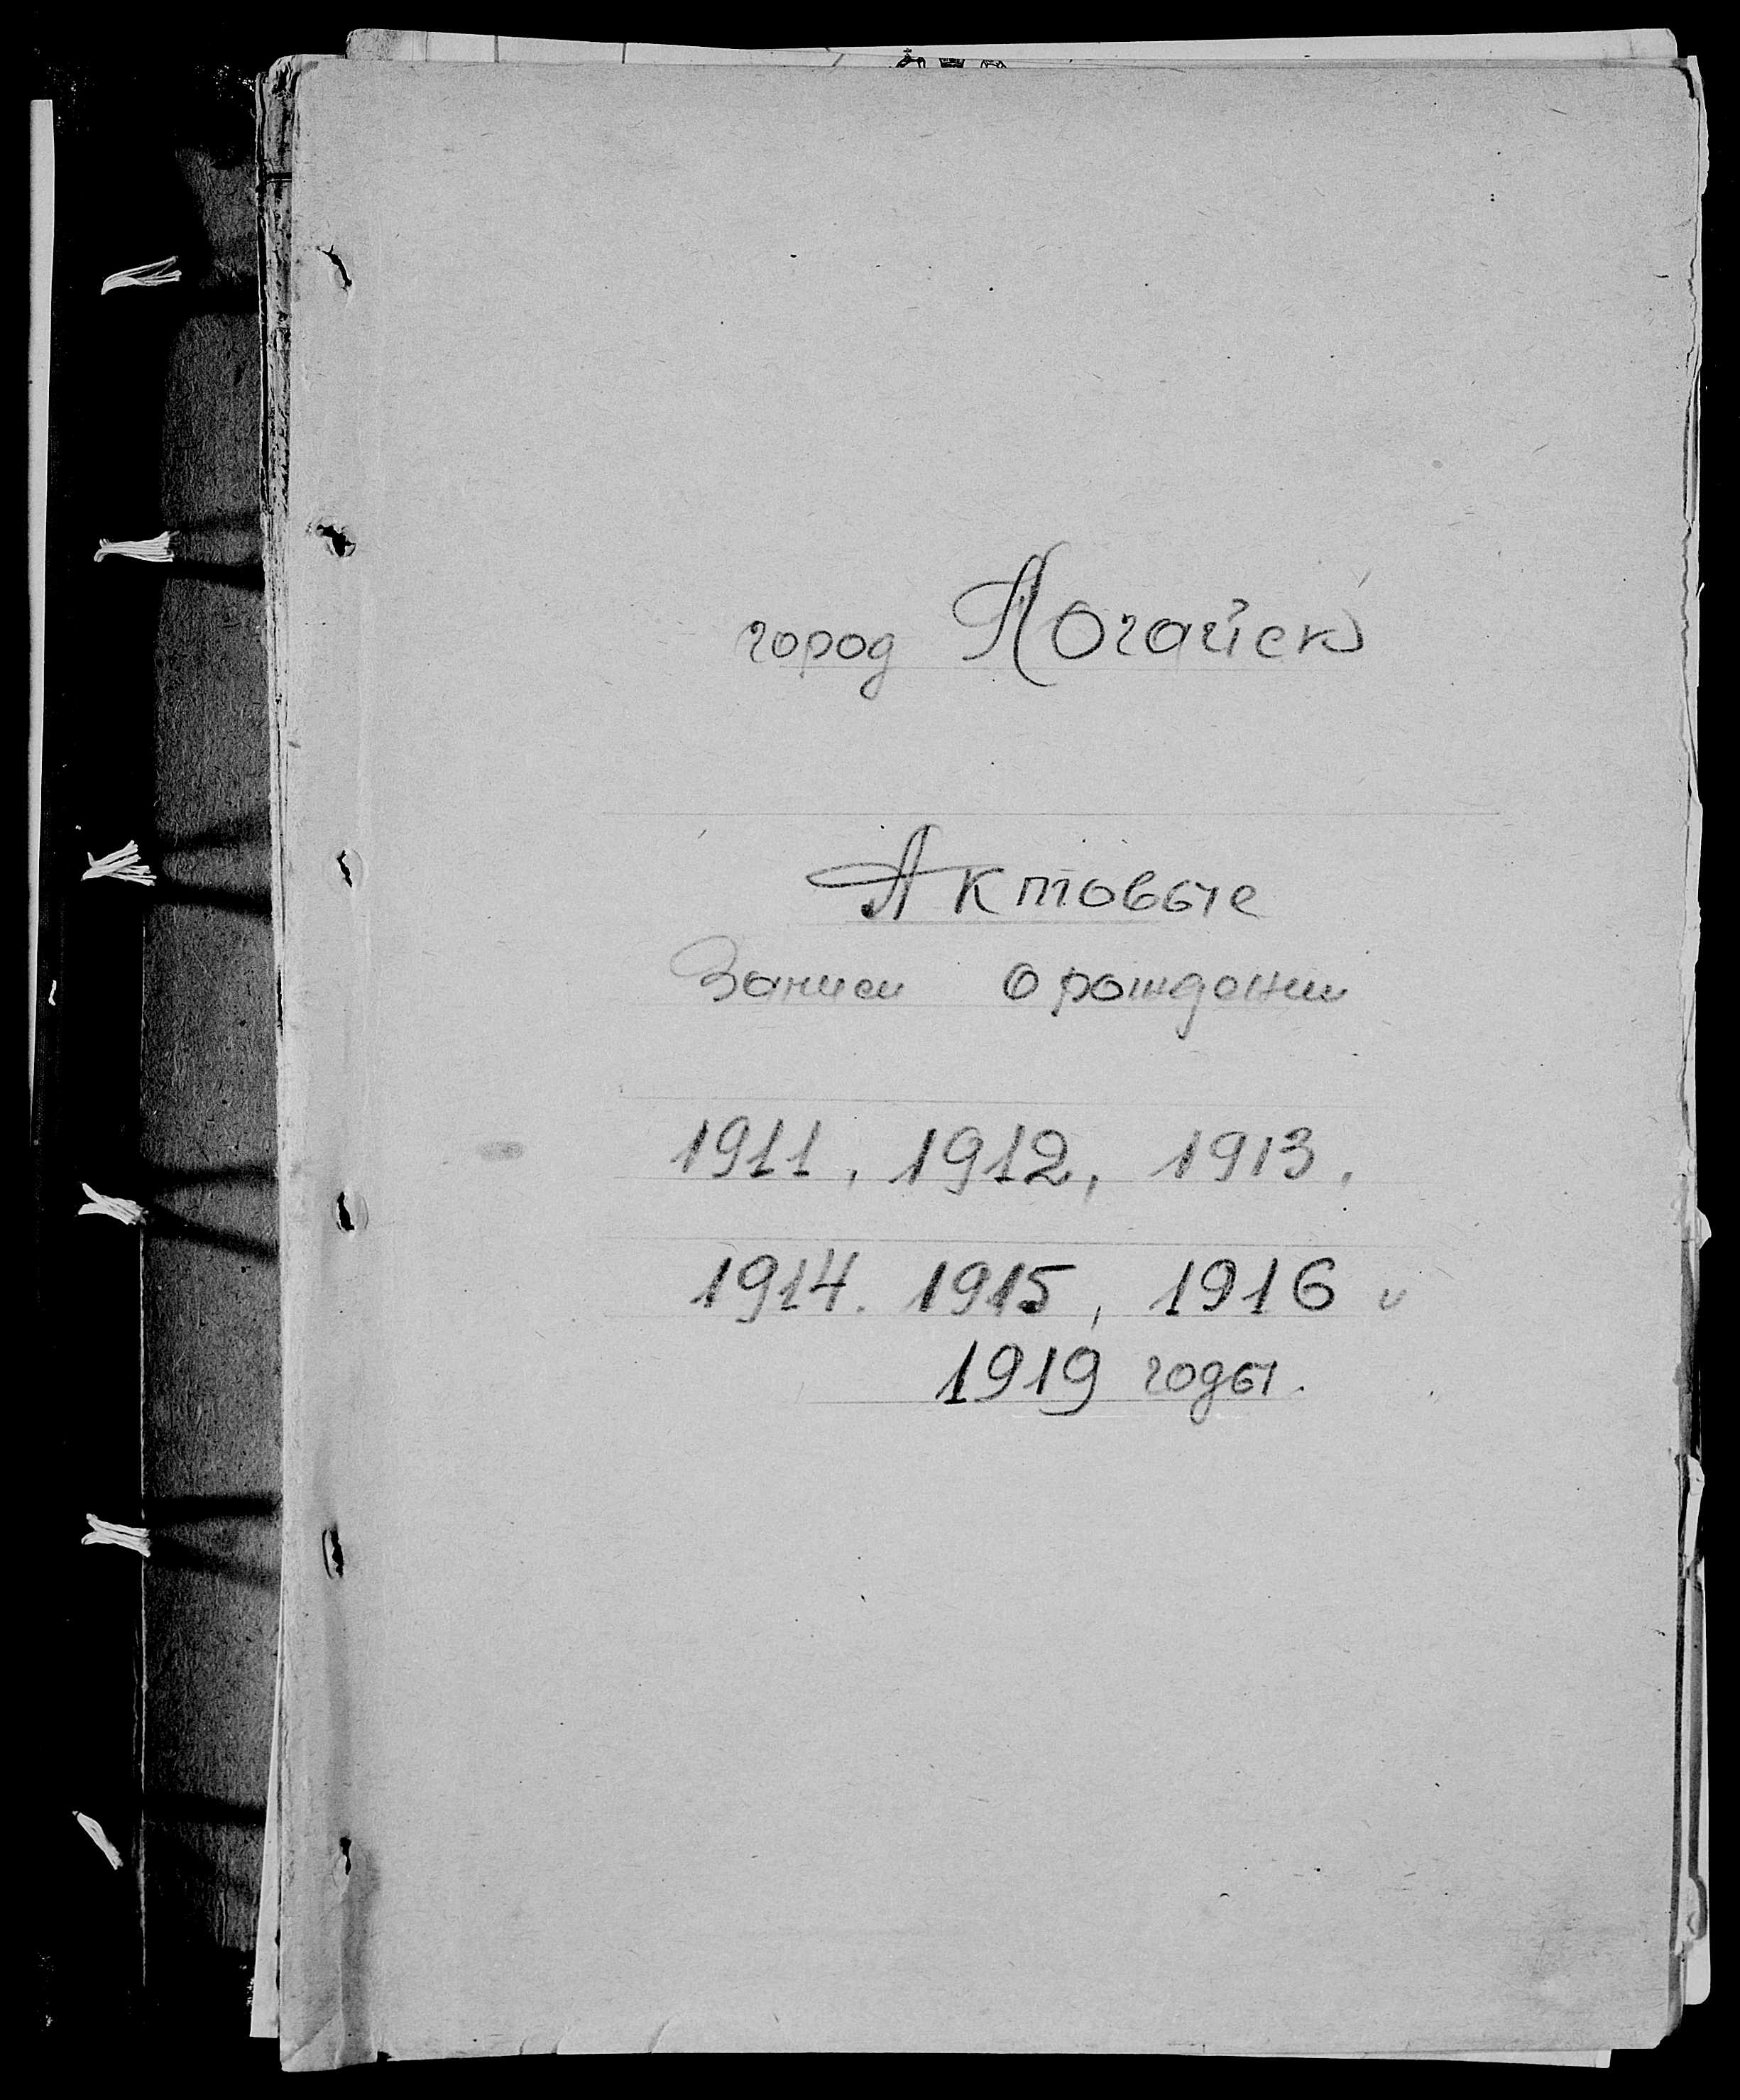 город Ногайск
Актовые
Записи о рождении
1911, 1912, 1913,
1914. 1915, 1916 и
1919 годы.